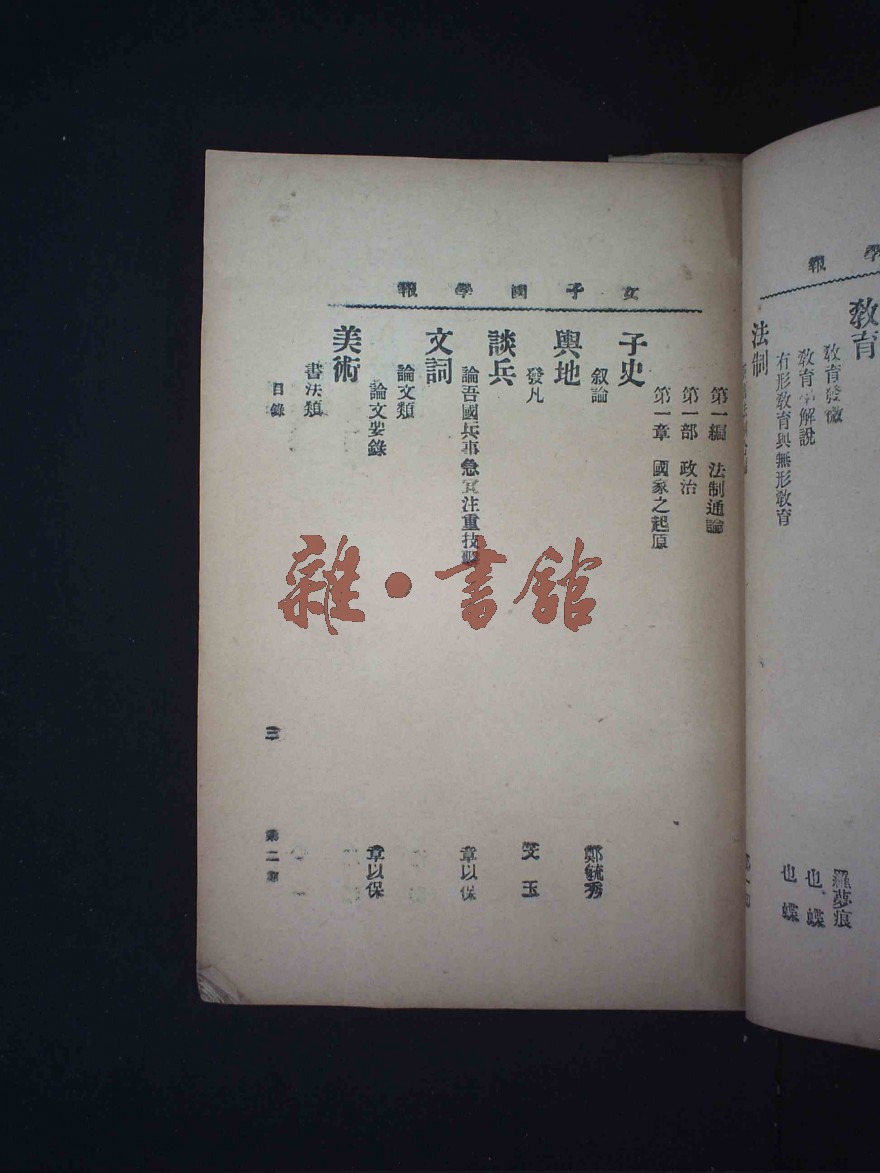 學報
教育
教育發微
羅夢痕
教育學解說
也蝶
有形教育與無形教育
也蝶
法制
女子國學報
第一編 法制通論
第一部 政治
第一章 國家之起原
子史
叙論
鄭毓秀
輿地
發凡
文玉
談兵
論吾國兵事急宜注重技擊
章以保
文詞
論文類
論文要錄
章以保
美術
書法類
目錄
三
第二期
雜·書館